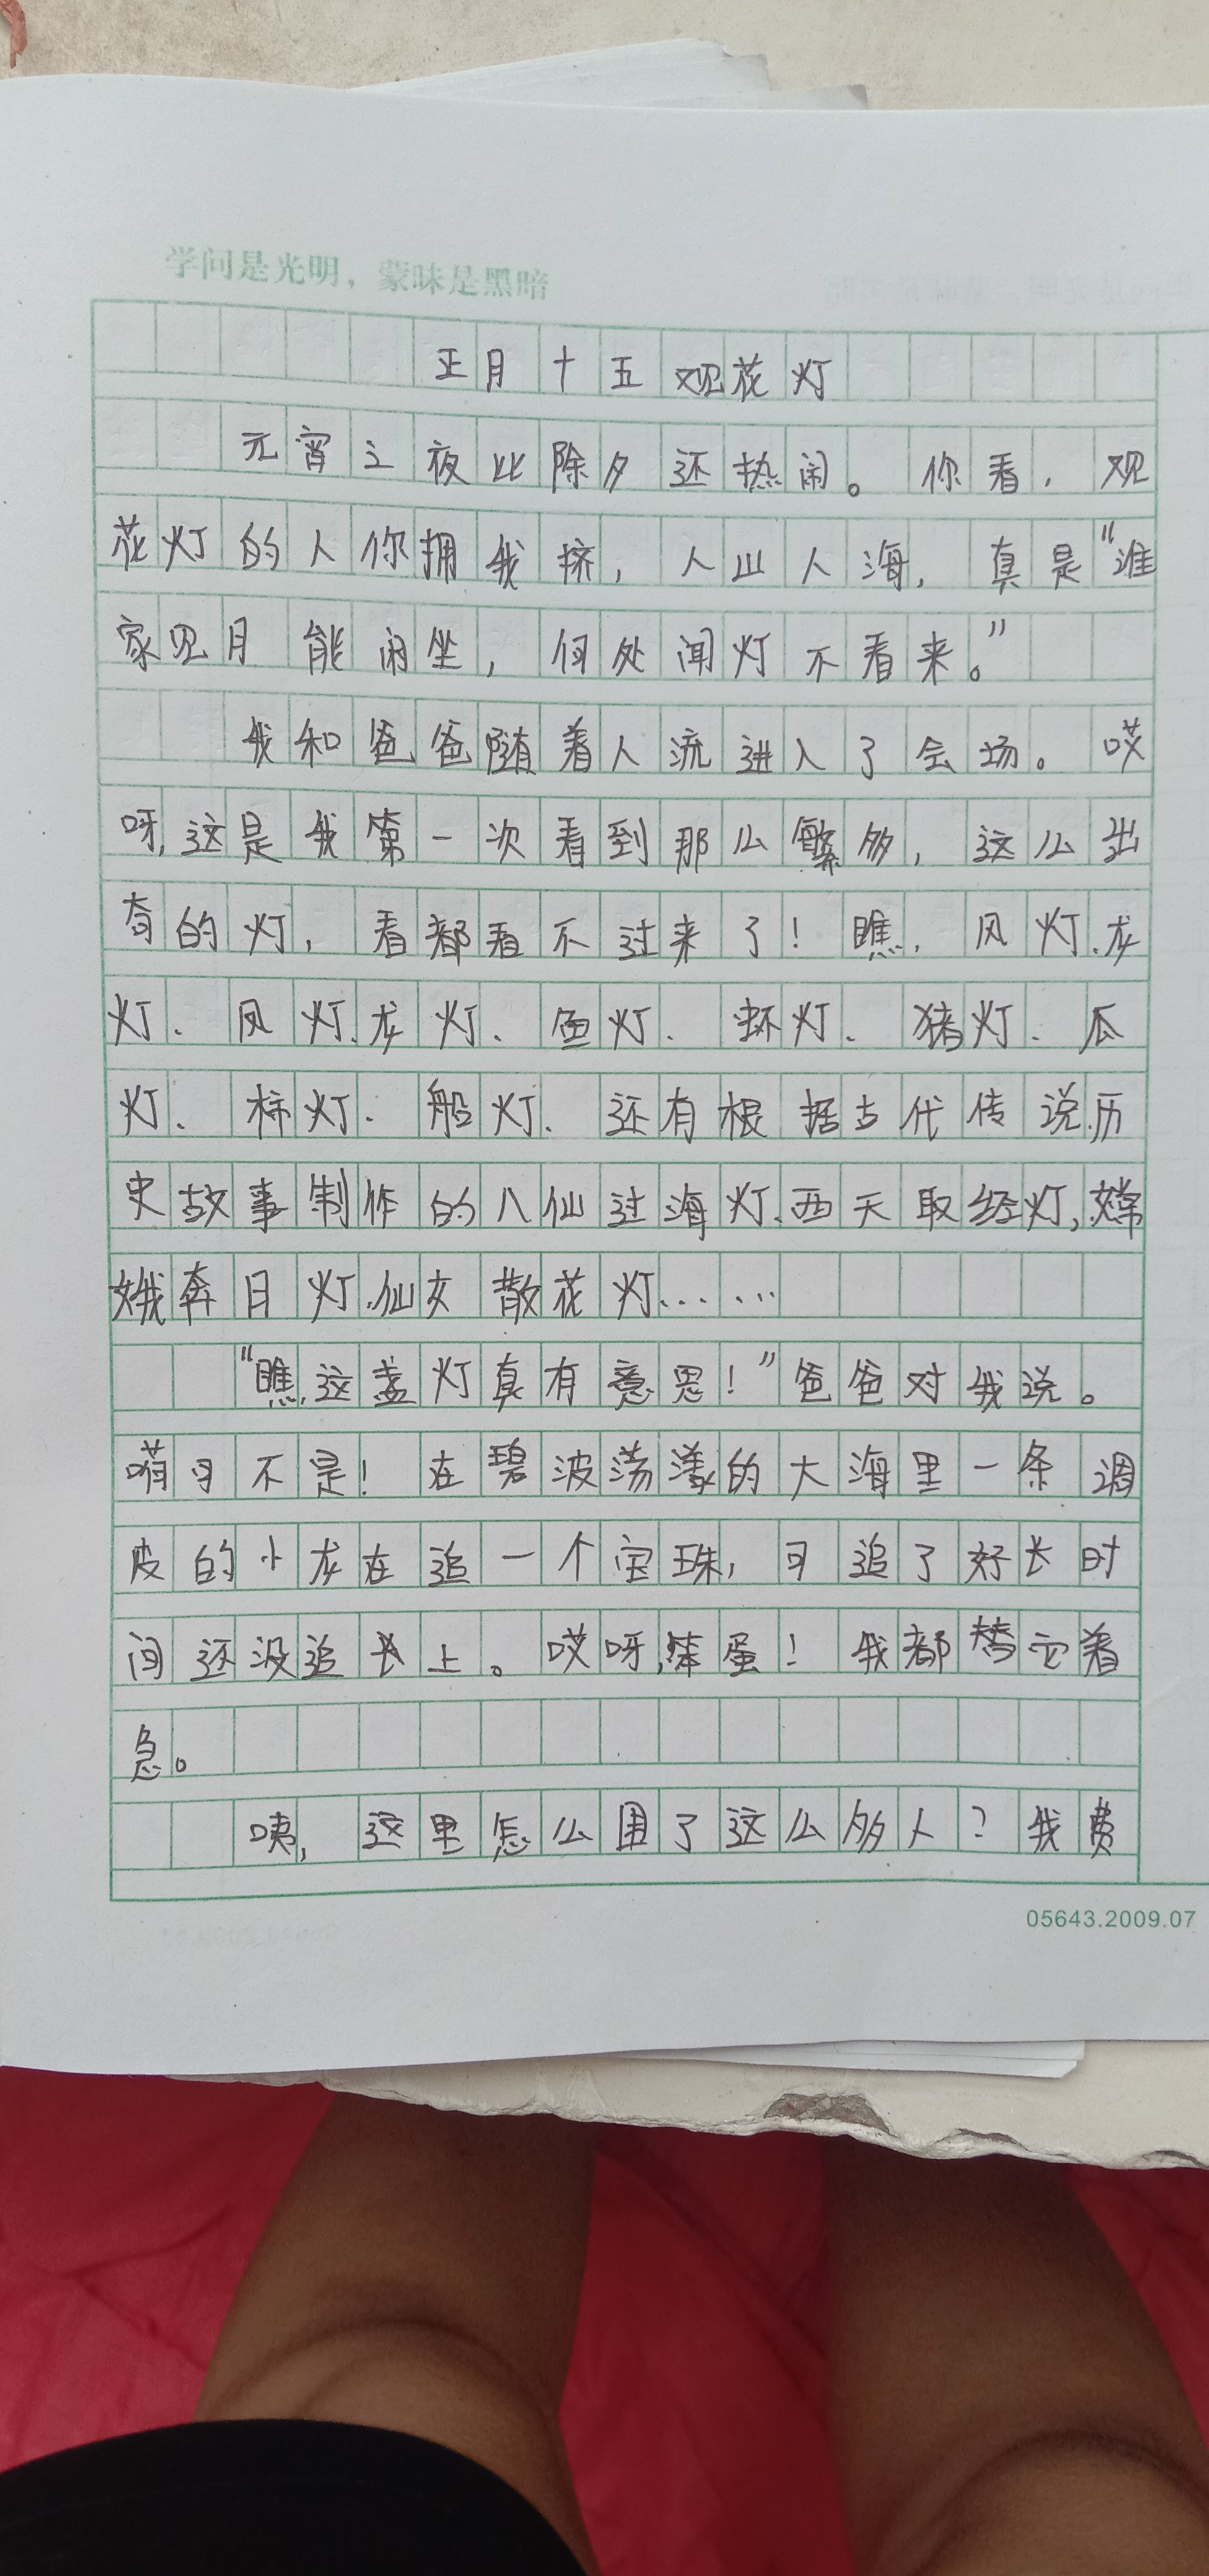 学问是光明，蒙昧是黑暗
正月十五观花灯
元宵之夜比除夕还热闹。你看，观
花灯的人你拥我挤，人山人海，真是“谁
家见月能闲坐，何处闻灯不看来。”
我和爸爸随着人流进入了会场。哎
呀，这是我第一次看到那么繁多，这么出
奇的灯，看都看不过来了！瞧，风灯、龙
灯、凤灯、龙灯、鱼灯、虾灯、猪灯、瓜
灯、柿灯、船灯、还有根据古代传说、历
史故事制作的八仙过海灯、西天取经灯，嫦
娥奔月灯、仙女散花灯……
“瞧，这盏灯真有意思！”爸爸对我说。
嗬可不是！在碧波荡漾的大海里一条调
皮的小龙在追一个宝珠，可追了好长时
间还没追上。哎呀，笨蛋！我都替它着
急。
咦，这里怎么围了这么多人？我费
05643.2009.07